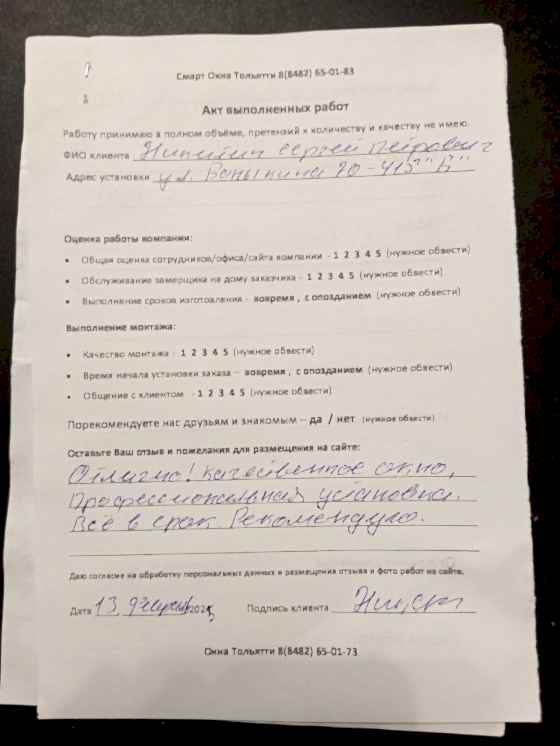 Смарт Окна Тольятти 8(8482) 65-01-83
Акт выполненных работ
Работу принимаю в полном объёме, претензий к количеству и качеству не имею.
ФИО клиента Никитин Сергей Петрович
Адрес установки ул. Ваныкина 20-415 "Б"
Оценка работы компании:
• Общая оценка сотрудников/офиса/сайта компании - 1 2 3 4 5 (нужное обвести)
• Обслуживание замерщика на дому заказчика - 1 2 3 4 5 (нужное обвести)
• Выполнение сроков изготовления - вовремя , с опозданием (нужное обвести)
Выполнение монтажа:
• Качество монтажа - 1 2 3 4 5 (нужное обвести)
• Время начала установки заказа – вовремя , с опозданием (нужное обвести)
• Общение с клиентом - 1 2 3 4 5 (нужное обвести)
Порекомендуете нас друзьям и знакомым – да / нет (нужное обвести)
Оставьте Ваш отзыв и пожелания для размещения на сайте:
Отлично! Качественное окно,
Профессиональная установка.
Всё в срок Рекомендую.
Даю согласие на обработку персональных данных и размещения отзыва и фото работ на сайте.
Дата 13 февраля 2025 Подпись клиента
Окна Тольятти 8(8482) 65-01-73